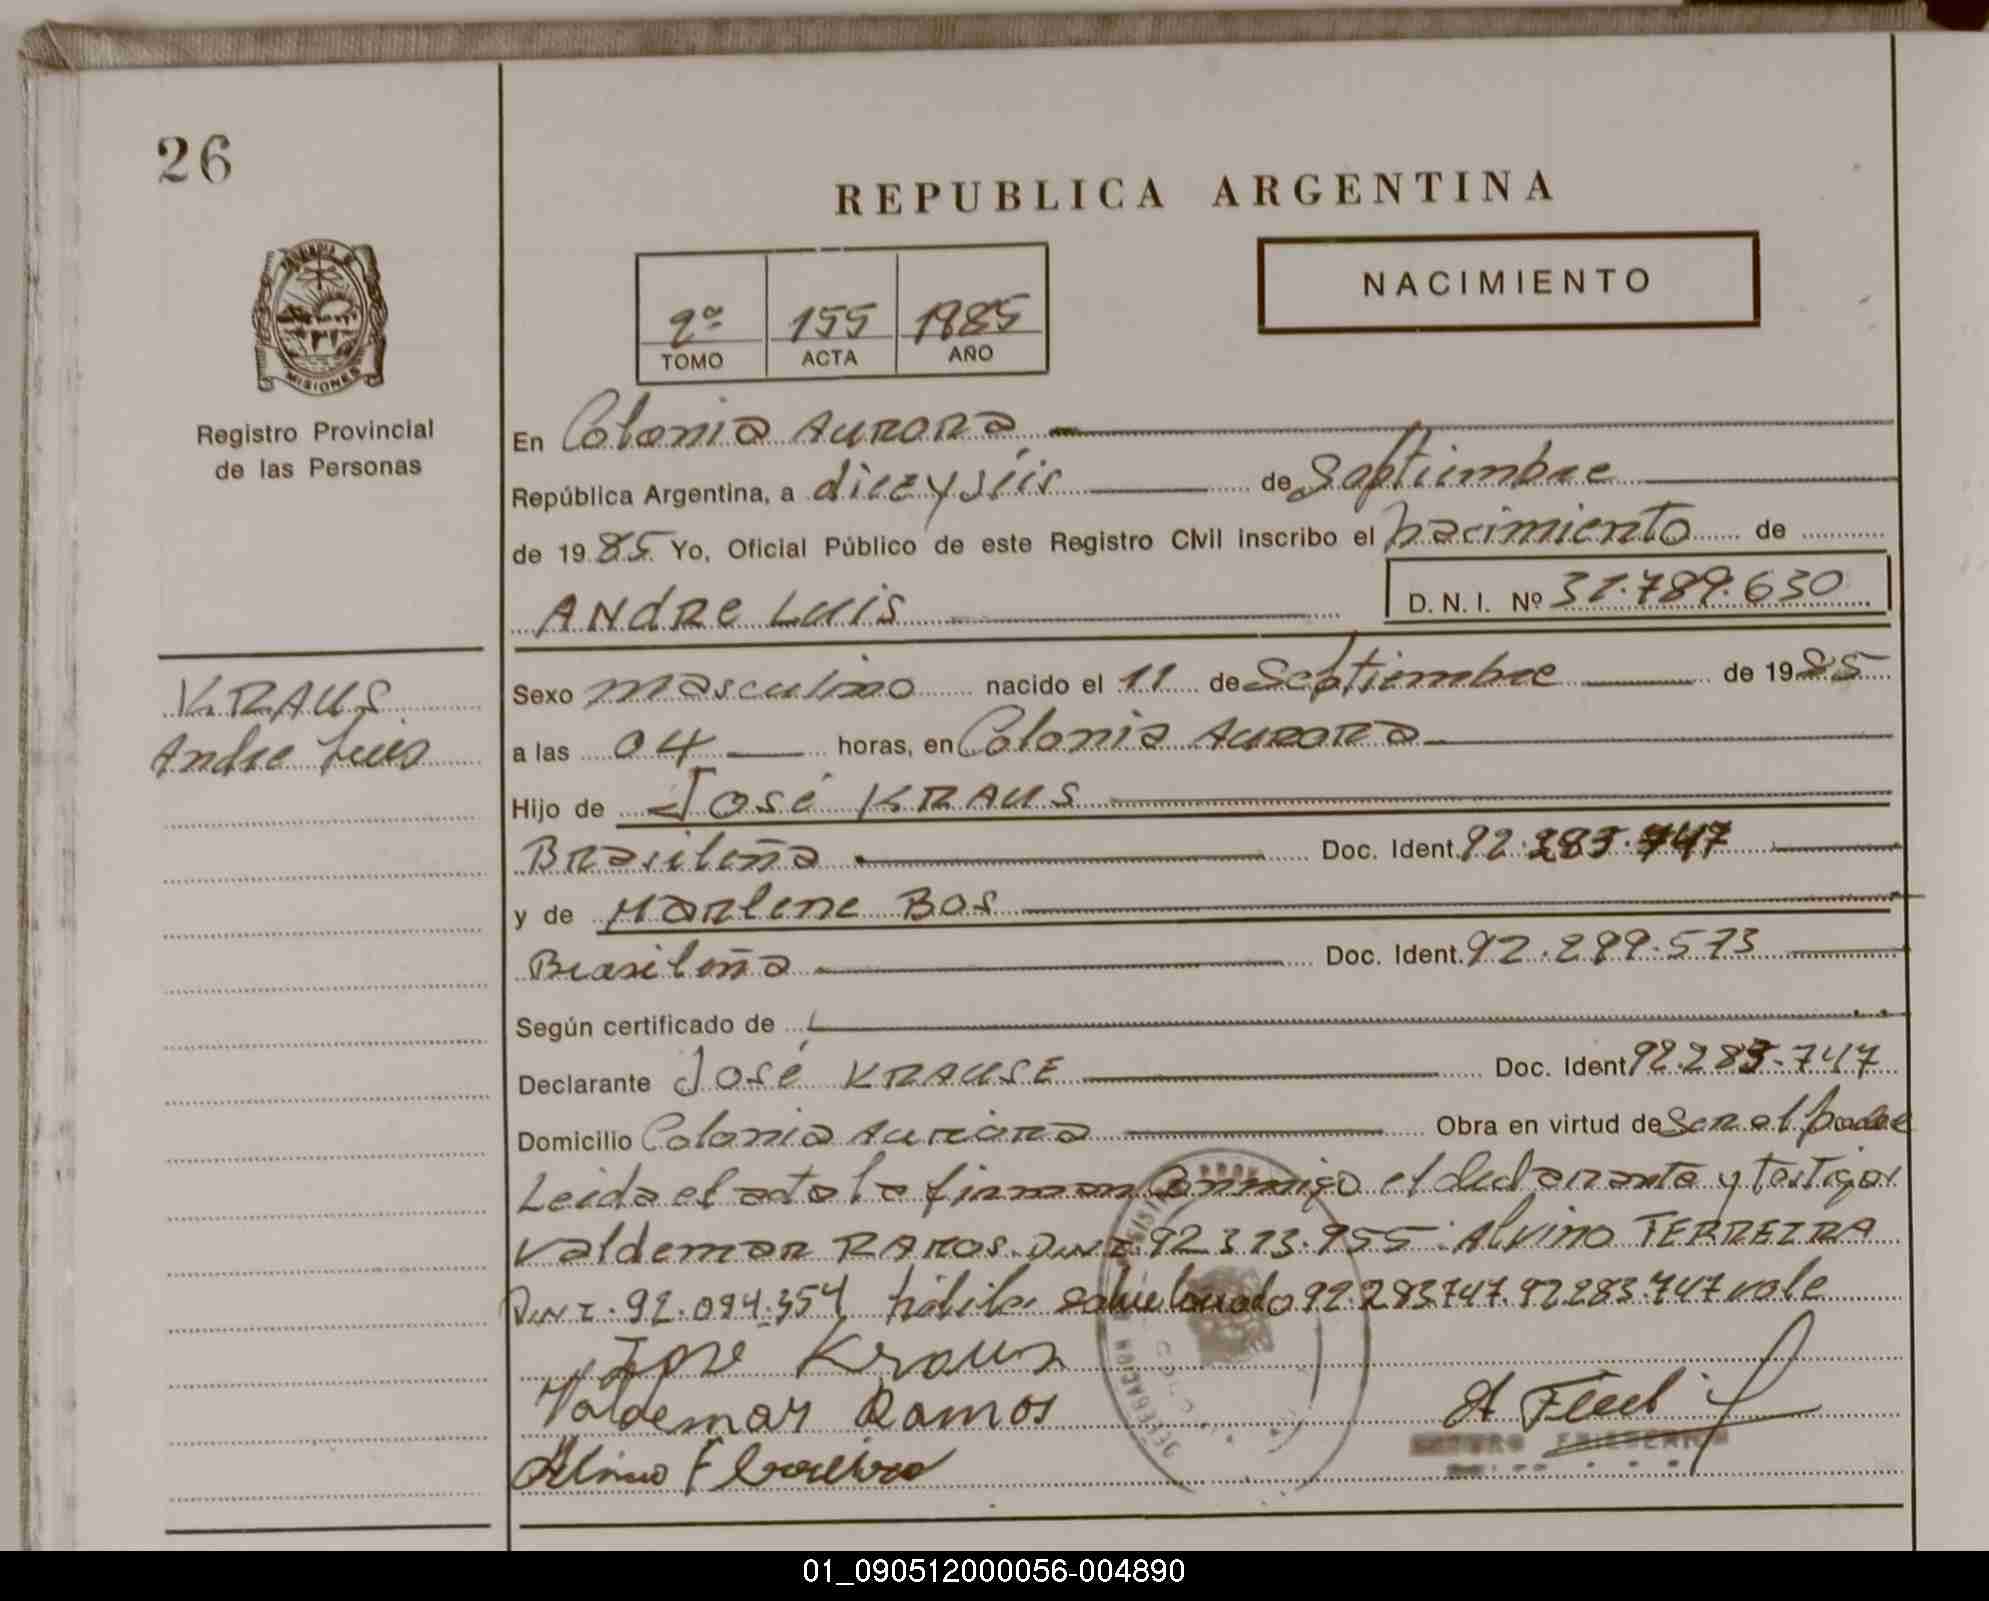 26
REPUBLICA ARGENTINA
NACIMIENTO
2º 155 1985
TOMO ACTA AÑO
MISIONES
Registro Provincial
de las Personas
En Colonia Aurora
República Argentina, a diez y séis de Septiembre
de 1985 Yo, Oficial Público de este Registro Civil inscribo el nacimiento de
ANdRE Luis D. N. I. Nº 31.789.630
KRAUS
Andre Luis
Sexo masculino nacido el 11 de Septiembre de 1985
a las 04 horas, en Colonia Aurora
Hijo de José KRAUS
Brasileña Doc. Ident. 92.283.747
y de Marlene Bos
Brasileña Doc. Ident. 92.299.573
Según certificado de
Declarante José KRAUSE Doc. Ident 92.283.747
Domicilio Colonia Aurora Obra en virtud de Ser el padre
Leida el acta la firman conmigo el declarante y testigos
Valdemar RAMOS D.N.I. 92.313.955 Alvino FERREIRA
D.N.I. 92.094.354 92.283747. 92283.747 vale
Jose Kraus
Valdemar Ramos
DELEGACION
01_090512000056-004890